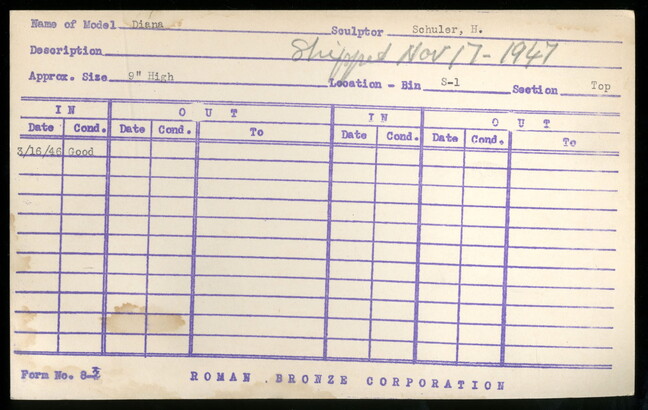 Name of Model Diana Sculptor Schuler, H.
Description Shipped Nov 17 - 1947
Approx. Size 9" High Location - Bin S-1 Section Top
IN OUT IN OUT
Date Cond. Date Cond. To Date Cond. Date Cond. To
3/16/46 Good
Form No. 8-3
ROMAN BRONZE CORPORATION